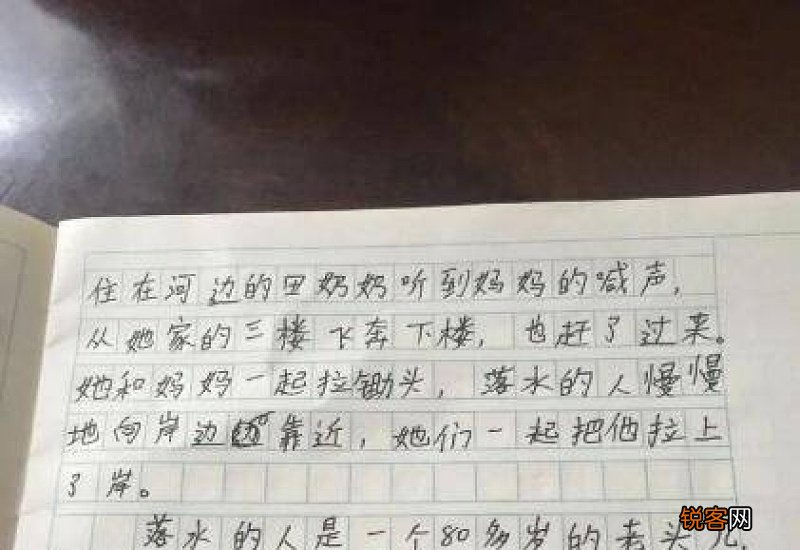 住在河边的田奶奶听到妈妈的喊声,
从她家的三楼飞奔下楼,也赶了过来。
她和妈妈一起拉锄头,落水的人慢慢
地向岸边靠近,她们一起把他拉上
了岸。
落水的人是一个80多岁的老头儿,
锐客网